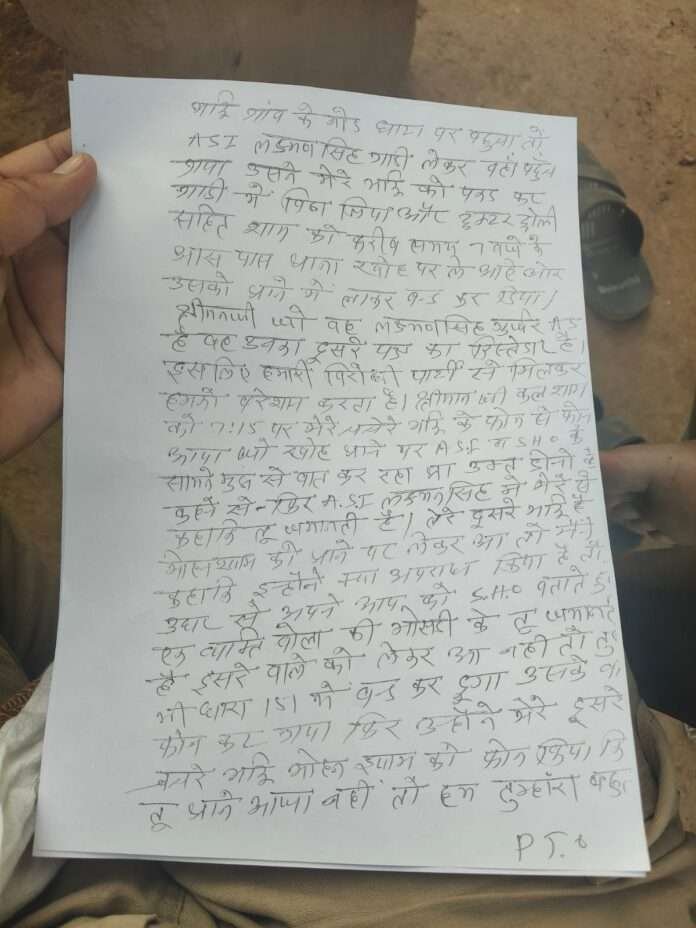 भाई गांव के मोड धाम पर पहुचा तो
A.S.I लक्ष्मणसिंह गाडी लेकर वहाँ पहुँच
गया उसने मेरे भाई को पकड कर
गाडी में बिठा लिया और ट्रोली
सहित शाम को करीब समय 7 बजे के
आस पास थाना खोह पर ले आहे और
उसको थाने में लाकर बन्द कर दिया।
श्रीमानजी जो वह लक्ष्मणसिंह गुर्जर A.S
है वह उनका दूसरे पक्ष का रिस्तेदार है।
इसलिए हमारी विरोधी पार्टी से मिलकर
हमको परेशान करता है। श्रीमान जी कल शाम
को 7:15 पर मेरे चचेरे भाई के फोन से फोन
आया जो खोह थाने पर A.S.I व S.H.O के
सामने मुझ से बात कर रहा था उक्त दोनो के
कहने से फिर A.S.I लक्ष्मणसिंह ने मेरे से
कहाकि तू जमानती है। तेरे दूसरे भाई है
मोहनश्याम को थाने पर लेकर आ तो मैंने
कहाकि इन्होंने क्या अपराध किया है तो
उधर से अपने आप को S.H.O बताते हुए
एक व्यक्ति बोला की भोसडी के तू जमानती
है दूसरे वाले को लेकर आ नही तो तुझे
भी धारा 151 में बन्ड कर दूगा उसके बा
फोन कट गया फिर उन्होंने मेरे दूसरे
चचरे भाई मोहन श्याम को फोन किया कि
तू थाने आजा नही तो हम तुम्हारा बहुत
P T. o